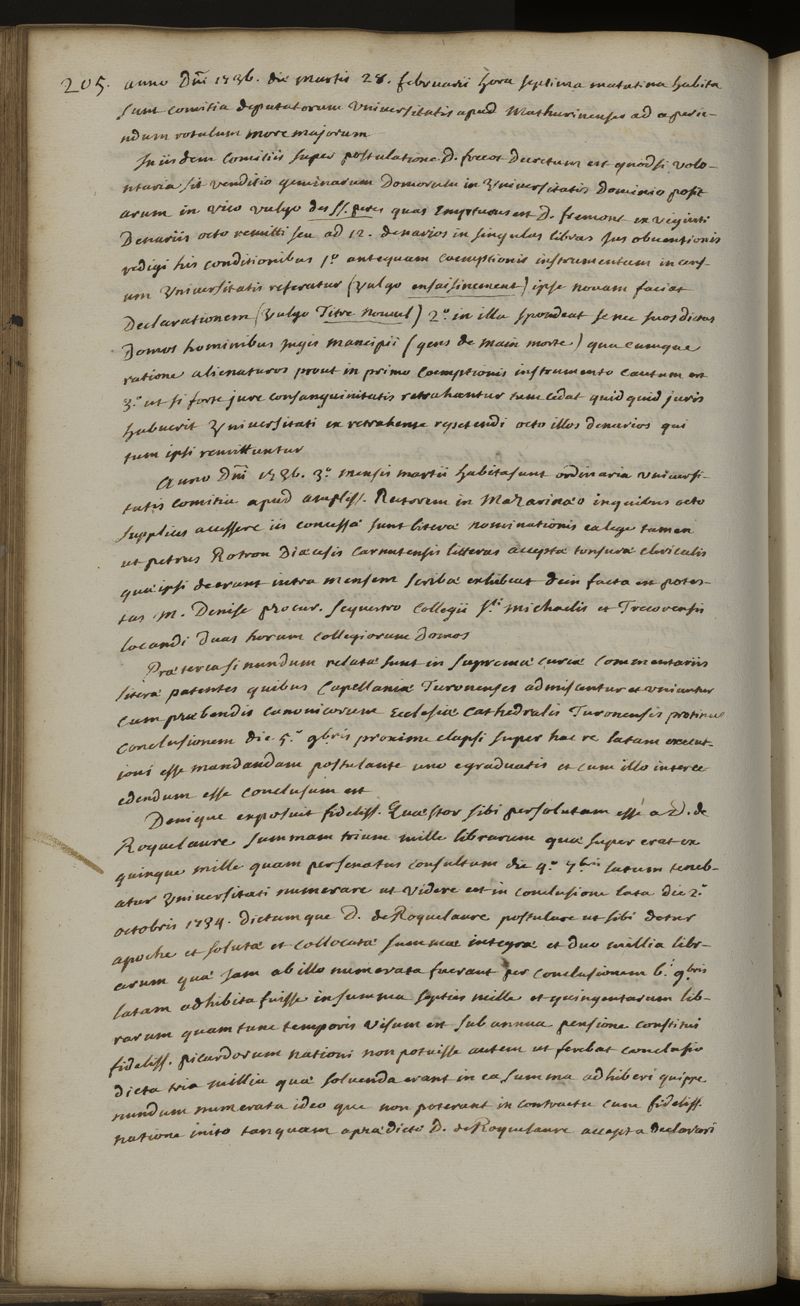 205. anno Dni 1736. die martis 28. februarii hora septima matutina habita
sunt comitia deputatorum Universitatis apud Mathurinenses ad aperie-
ndum rotulum more majorum
In iisdem Comitiis super postulatione D. decretum est quod si volo-
ntaria sit venditio geminarum Domorum in Universitatis Dominio posit
arum in vico vulgo des SS. peres quas Empturus est D. fremont ex viginti
Denariis octo remitti seu ad 12. denarios in singulas libras jus obventionis
redigi his conditionibus 1.º antequam coemptionis instrumentum in cens-
um Universitatis referatur (vulgo ensaisinement) ipse novam faciat
Declarationem (vulgo Titre nouvel) 2.º in illa spondeat se nec suos dictas
Domos hominibus jugis mancipii (gens de main morte) quacumque
ratione alienaturos prout in primo Coemptionis instrumento cautum est
3.º ut si forte jure consanguinitatis retrahantur tum cedat quidquid juris
habuerit Universitati ex retrahente repetendi octo illos denarios qui
tum ipsi remittuntur
Anno Dni 1736. 3.º mensis martii habita sunt ordinaria universi-
tatis comitia apud ampliss. Rectorem in Mazarinæo in quibus octo
supplices accessere iis concessæ sunt literæ nominationis ea lege tamen
ut petrus Rotrou Diœcesis Carnutensis litteras acceptæ tonsuræ clericalis
quæ ipsi deerant intra mensem scribæ exhibeat dein facta est potes-
tas M. Denise procur. sequestro Collegii Sti michaelis et Trecorensis
locandi duas horum collegiorum domos
Præterea si nundum relatæ sunt in supremæ curiæ Commentariis
literæ patentes quibus Capellaniæ Turonenses admiscentur et uniuntur
cum præbendis canonicorum Ecclesiæ cathedralis Turonensis protinus
conclusionem die 5.ª 9bris proxime elapsi super hac re latam execut-
ioni esse mandandam postulante uno e graduatis et cum illo interce
edendum esse conclusum est
Denique exposuit fideliss. Quæstor sibi persolutam esse a D. de
Roquelaure summam trium mille librarum quæ super erat ex
quinque mille quam per senatus consultum die 4.ª 7bris latum teneb-
atur Universitati numerare ut videre est in conclusione lata die 2.ª
octobris 1734. dictumque D. de Roquelaure postulare ut sibi detur
apoche et solutæ et collocatæ summæ integræ et duo millia libr-
arum quæ jam ab illo numerata fuerant per conclusionem 6.ª 9bris
latam adhibita fuisse in summa septies mille et quingentarum lib-
rarum quam tunc temporis visum est sub annua pensione constitui
fideliss. picardorum nationi non potuisse autem ut ferebat conclusio
dicta tria millia quæ solvenda erant in ea summa adhiberi quippe
nundum numerata ideo que non poterant in contractu cum fideliss.
natione inito tanquam a prædicto D. de Roquelaure accepta declarari